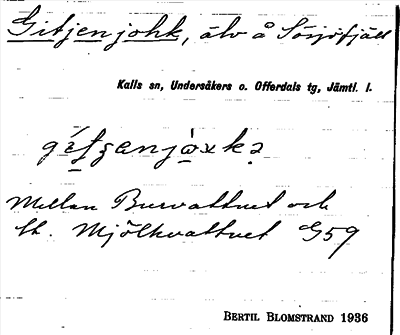 Gitjenjohk, älv å Sösjöfjäll
Kalls sn, Undersåkers o. Offerdals tg, Jämtl. l.
Mellan Burvattnet och
St. Mjölkvattnet G59
BERTIL BLOMSTRAND 1936